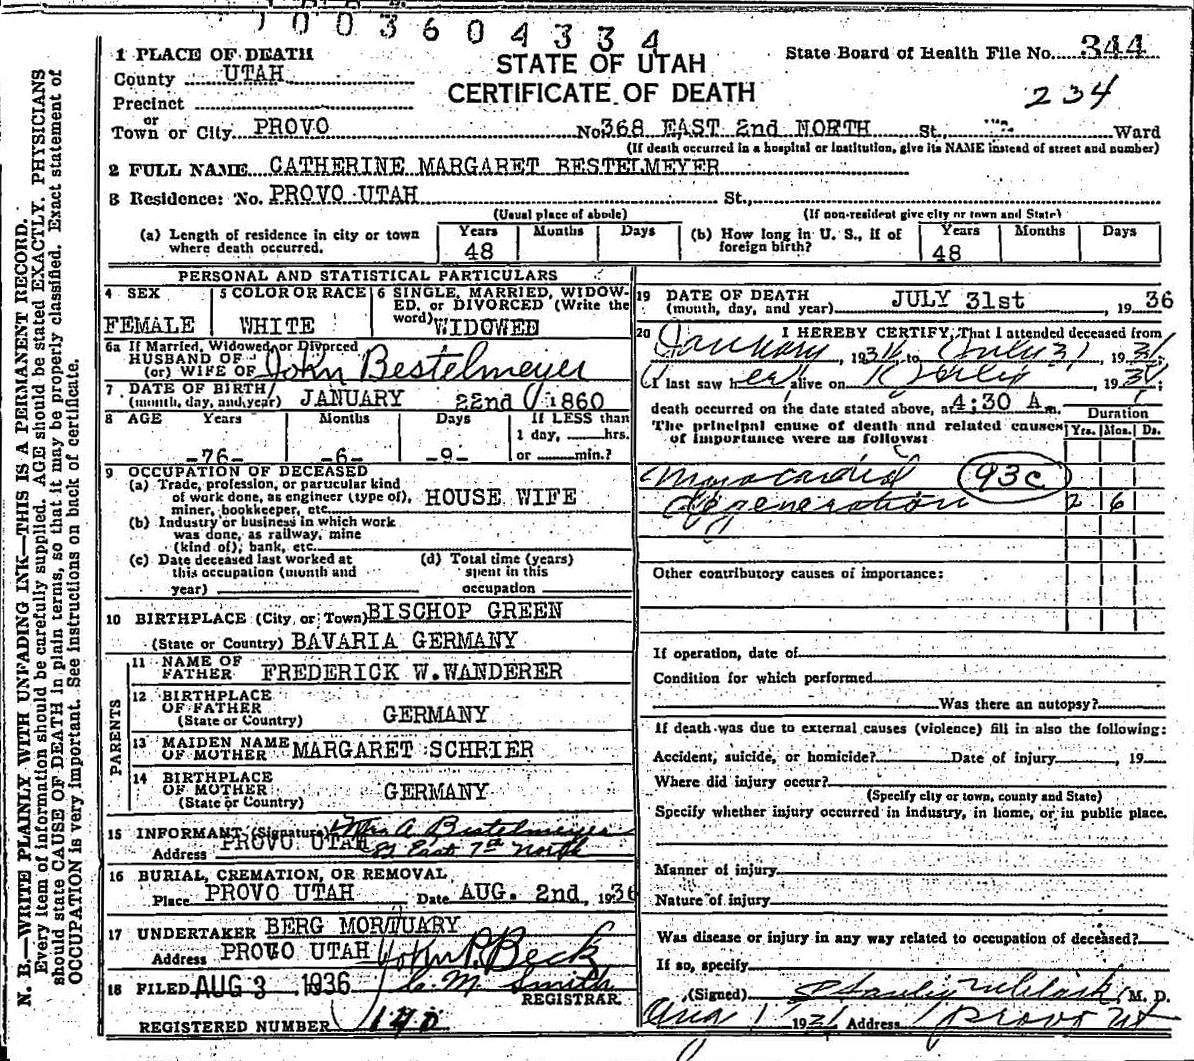 1003604334
1 PLACE OF DEATH
County UTAH
Precinct
or
Town or City PROVO
STATE OF UTAH
CERTIFICATE OF DEATH
State Board of Health File No. 344
234
No 368 EAST 2nd NORTH St., Ward
(If death occurred in a hospital or institution, give its NAME instead of street and number)
2 FULL NAME CATHERINE MARGARET BESTELMEYER
3 Residence: No. PROVO UTAH St.,
(Usual place of abode) (If non-resident give city or town and State)
(a) Length of residence in city or town where death occurred. Years 48 Months Days
(b) How long in U. S., if of foreign birth? Years 48 Months Days
PERSONAL AND STATISTICAL PARTICULARS
4 SEX FEMALE
5 COLOR OR RACE WHITE
6 SINGLE, MARRIED, WIDOWED, or DIVORCED (Write the word) WIDOWED
6a If Married, Widowed or Divorced
HUSBAND OF
(or) WIFE OF John Bestelmeyer
7 DATE OF BIRTH
(month, day, and year) JANUARY 22nd 1860
8 AGE Years Months Days If LESS than
1 day, hrs.
-76- -6- -9- or min.?
9 OCCUPATION OF DECEASED
(a) Trade, profession, or particular kind
of work done, as engineer (type of),
miner, bookkeeper, etc. HOUSE WIFE
(b) Industry or business in which work
was done, as railway, mine
(kind of), bank, etc.
(c) Date deceased last worked at
this occupation (month and
year)
(d) Total time (years)
spent in this
occupation
10 BIRTHPLACE (City or Town) BISCHOP GREEN
(State or Country) BAVARIA GERMANY
PARENTS
11 NAME OF
FATHER FREDERICK W.WANDERER
12 BIRTHPLACE
OF FATHER
(State or Country) GERMANY
13 MAIDEN NAME
OF MOTHER MARGARET SCHRIER
14 BIRTHPLACE
OF MOTHER
(State or Country) GERMANY
15 INFORMANT (Signature) Mrs A Bestelmeyer
Address PROVO UTAH 81 East 7th North
16 BURIAL, CREMATION, OR REMOVAL
Place PROVO UTAH Date AUG. 2nd, 1936
17 UNDERTAKER BERG MORTUARY
Address PROVO UTAH John P. Beck
18 FILED AUG 3 1936 C. M. Smith
REGISTRAR.
REGISTERED NUMBER 140
19 DATE OF DEATH
(month, day, and year) JULY 31st, 1936
20 I HEREBY CERTIFY, That I attended deceased from
January, 1936 to July 31, 1936
I last saw her alive on July, 1936;
death occurred on the date stated above, at 4:30 A m.
The principal cause of death and related causes
of importance were as follows:
Duration
Yrs. Mos. Ds.
Myocardial 93c
degeneration 2 6
Other contributory causes of importance:
If operation, date of
Condition for which performed
Was there an autopsy?
If death was due to external causes (violence) fill in also the following:
Accident, suicide, or homicide? Date of injury, 19
Where did injury occur?
(Specify city or town, county and State)
Specify whether injury occurred in industry, in home, or in public place.
Manner of injury
Nature of injury
Was disease or injury in any way related to occupation of deceased?
If so, specify
(Signed) Stanley M Clark, M. D.
Aug 1 1936 Address Provo Ut
N. B.—WRITE PLAINLY WITH UNFADING INK—THIS IS A PERMANENT RECORD.
Every item of information should be carefully supplied. AGE should be stated EXACTLY. PHYSICIANS
should state CAUSE OF DEATH in plain terms, so that it may be properly classified. Exact statement of
OCCUPATION is very important. See instructions on back of certificate.